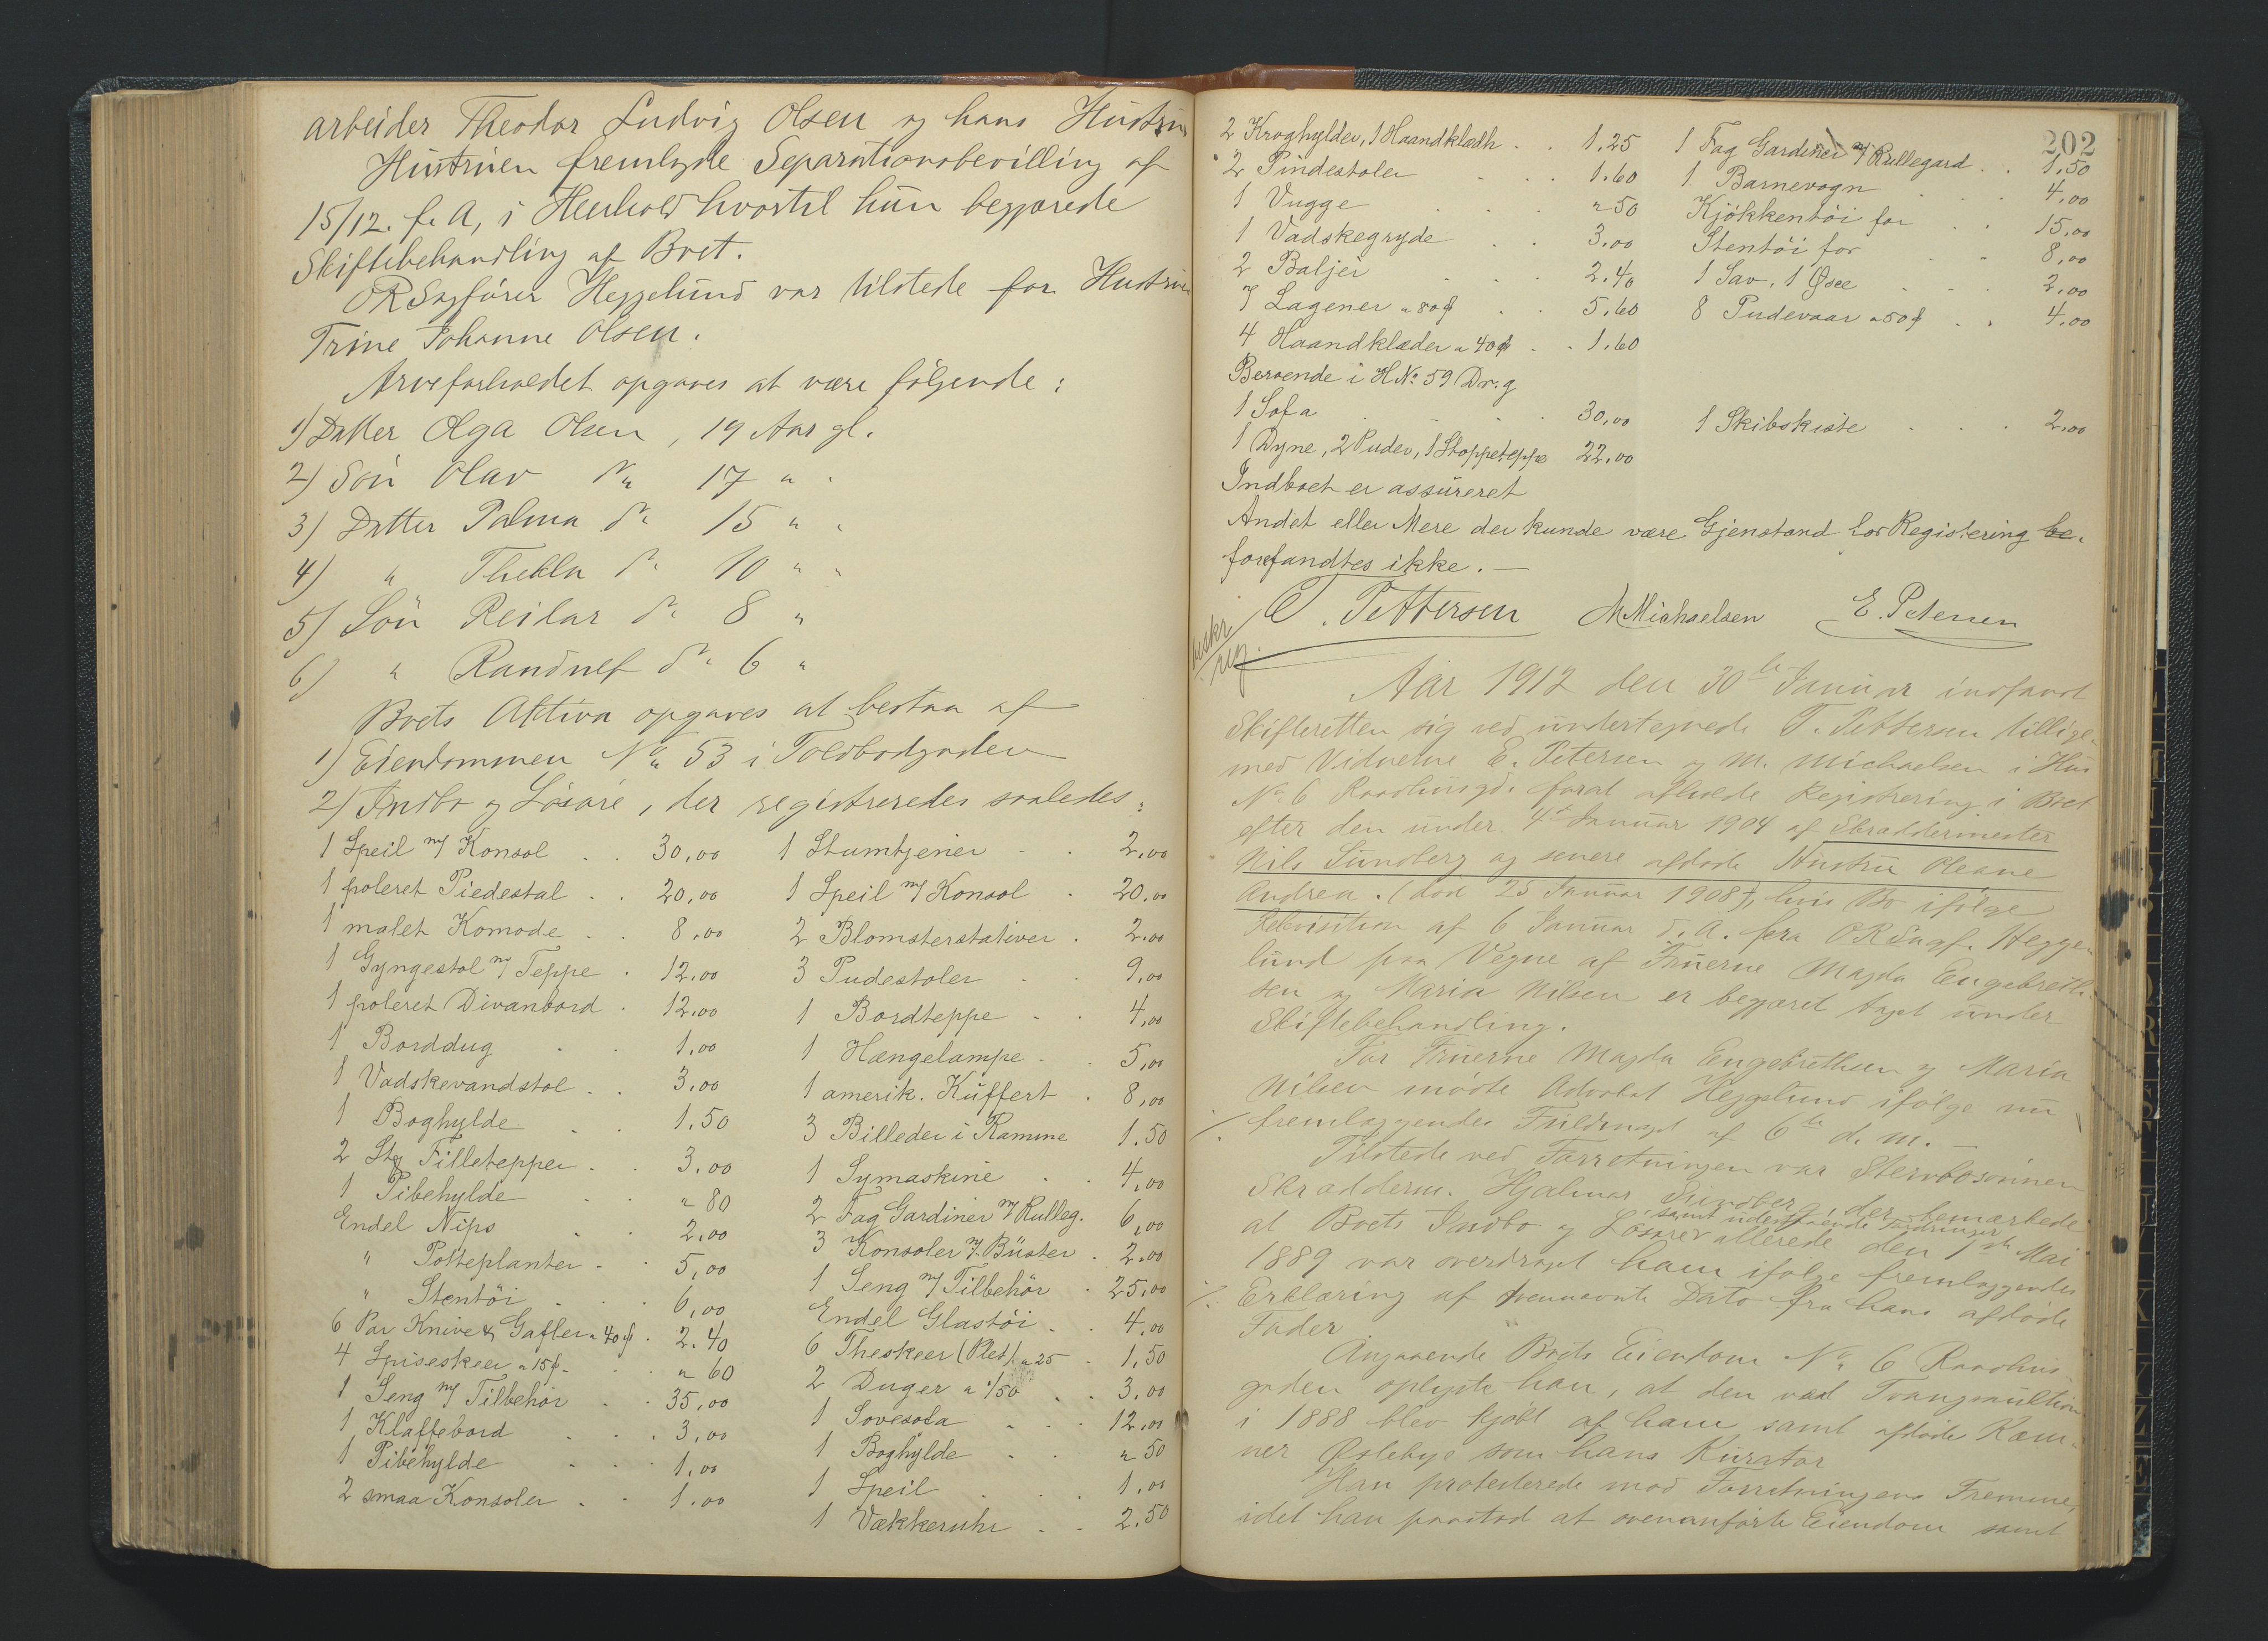 arbeider Theodor Ludvig Olsen og hans Hustru
Hustruen fremlagde Separationsbevilling af
15/12. f. A, i Henhold hvortil hun begjærede
Skiftebehandling af Boet.
ORSagfører Heggelund var tilstede for Hustruen
Trine Johanne Olsen.
Arveforholdet opgaves at være følgende:
1) Datter Olga Olsen, 19 Aar gl.
2) Søn Olav do 17 " "
3) Datter Palma do 15 " "
4) " Thekla do 10 " "
5) Søn Reidar do 8 "
6) " Randulf do 6 "
Boets Aktiva opgaves at bestaa af
1) Eiendommen No 53 i Toldbodgaden
2) Indbo og Løsøre, der registreredes saaledes:
1 Speil m/ Konsol . . 30,00
1 poleret Piedestal . . 20,00
1 malet Komode . . 8,00
1 Gyngestol m/ Teppe . 12.00
1 poleret Divanbord . 12,00
1 Borddug . . 1,00
1 Vadskevandstol . . 3,00
1 Boghylde . . 1.50
2 Stk Filletepper . . 3,00
1 Pibehylde . . " 80
Endel Nips . 2,00
" Potteplanter . . 5,00
" Stentøi . . . 6,00
6 Par Knive & Gafler a 40 ø . 2.40
4 Spiseskeer a 15 ø . . " 60
1 Seng m/ Tilbehør . . 35,00
1 Klaffebord . . 3,00
1 Pibehylde . . . 1,00
2 smaa Konsoler . . 1.00
1 Stumtjener . . 2,00
1 Speil m/ Konsol . 20.00
2 Blomsterstativer . 2.00
3 Pudestoler . 9,00
1 Bordteppe . . 4,00
1 Hængelampe . . 5,00
1 amerik. Kuffert . 8,00
3 Billeder i Ramme 1.50
1 Symaskine . . 4,00
2 Fag Gardiner m/ Rulleg. 6,00
3 Konsoler m/ Büster . 2.00
1 Seng m/ Tilbehør . 25,00
Endel Glastøi . . 4,00
6 Theskeer (Plet) a 25 . 1,50
2 Duger a 1/50 . . 3.00
1 Sovesofa . . . 12.00
1 Boghylde . . " 50
1 Speil . . . 1.00
1 Vækkeruhr . . 2.50
202
2 Kroghylder, 1 Haandklædh . . 1,25 1 Fag Gardiner m/ Rullegard . . 1,50
2 Pindestoler . . . 1.60 1 Barnevogn . . 4,00
1 Vugge . . . " 50 Kjøkkentøi for . . 15,00
1 Vadskegryde . . 3.00 Stentøi for . . 8,00
2 Baljer . . . 2.40 1 Sav, 1 Øxe . . . 2,00
7 Lagener a 80 ø . . 5.60 8 Pudevaar a 50 ø . . 4,00
4 Haandklæder a 40 ø . . 1.60
Beroende i HNo 59 Dr. g
1 Sofa . . . . 30,00 1 Skibskiste . . . 2,00
1 Dyne, 2 Puder, 1 Stoppeteppe 22.00
Indboet er assureret
Andet eller Mere der kunde være Gjenstand for Registering be.
forefandtes ikke. —
T. Pettersen M Michaelsen E. Petersen
beskr
reg.
Aar 1912 den 30te Januar indfandt
Skifteretten sig ved undertegnede T. Pettersen tillige
med Vidnerne E. Petersen og M. Michaelsen i Hus
No 6 Raadhusgd. forat afholde Registrering i Boet
efter den under 4de Januar 1904 af Skræddermester
Nils Sundberg og senere afdøde Hustru Oleane
Andrea. (død 25 Januar 1908), hvis Bo ifølge
Rekvisition af 6 Januar d. A. fra ORSagf. Hegge-
lund paa Vegne af Fruerne Magda Engebreth-
sen og Maria Nilsen er begjæret taget under
Skiftebehandling.
For Fruerne Magda Engebrethsen og Maria
Nilsen mødte Advokat Heggelund ifølge nu
./. fremlæggendes Fuldmagt af 6te d. M. —
Tilstede ved Forretningen var Stervbosønnen
Skrædderm. Hjalmar Sundberg, der bemærkede
samt udestaaende Fordringer
at Boets Indbo og Løsøre allerede den 1ste Mai
1889 var overdraget ham ifølge fremlæggendes
./. Erklæring af ovennævnte Dato fra hans afdøde
Fader
Angaaende Boets Eiendom No 6 Raadhus-
gaden oplyste han, at den ved Tvangsauktion
i 1888 blev kjøbt af ham samt afdøde Kæm-
ner Øslebye som hans Kurator
Han protesterede mod Forretningens Fremme,
idet han paastod at ovenanførte Eiendom samt